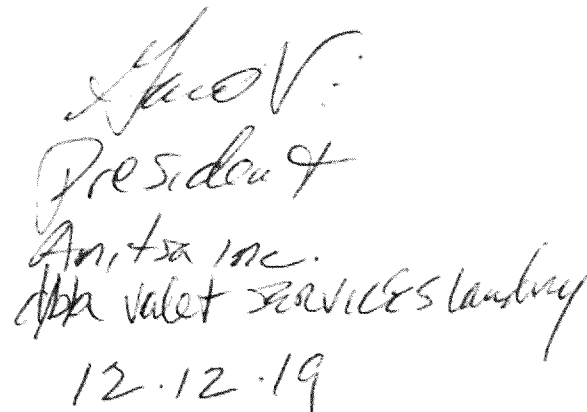 President
Anitsa inc.
dba valet SERVICES laundry
12.12.19